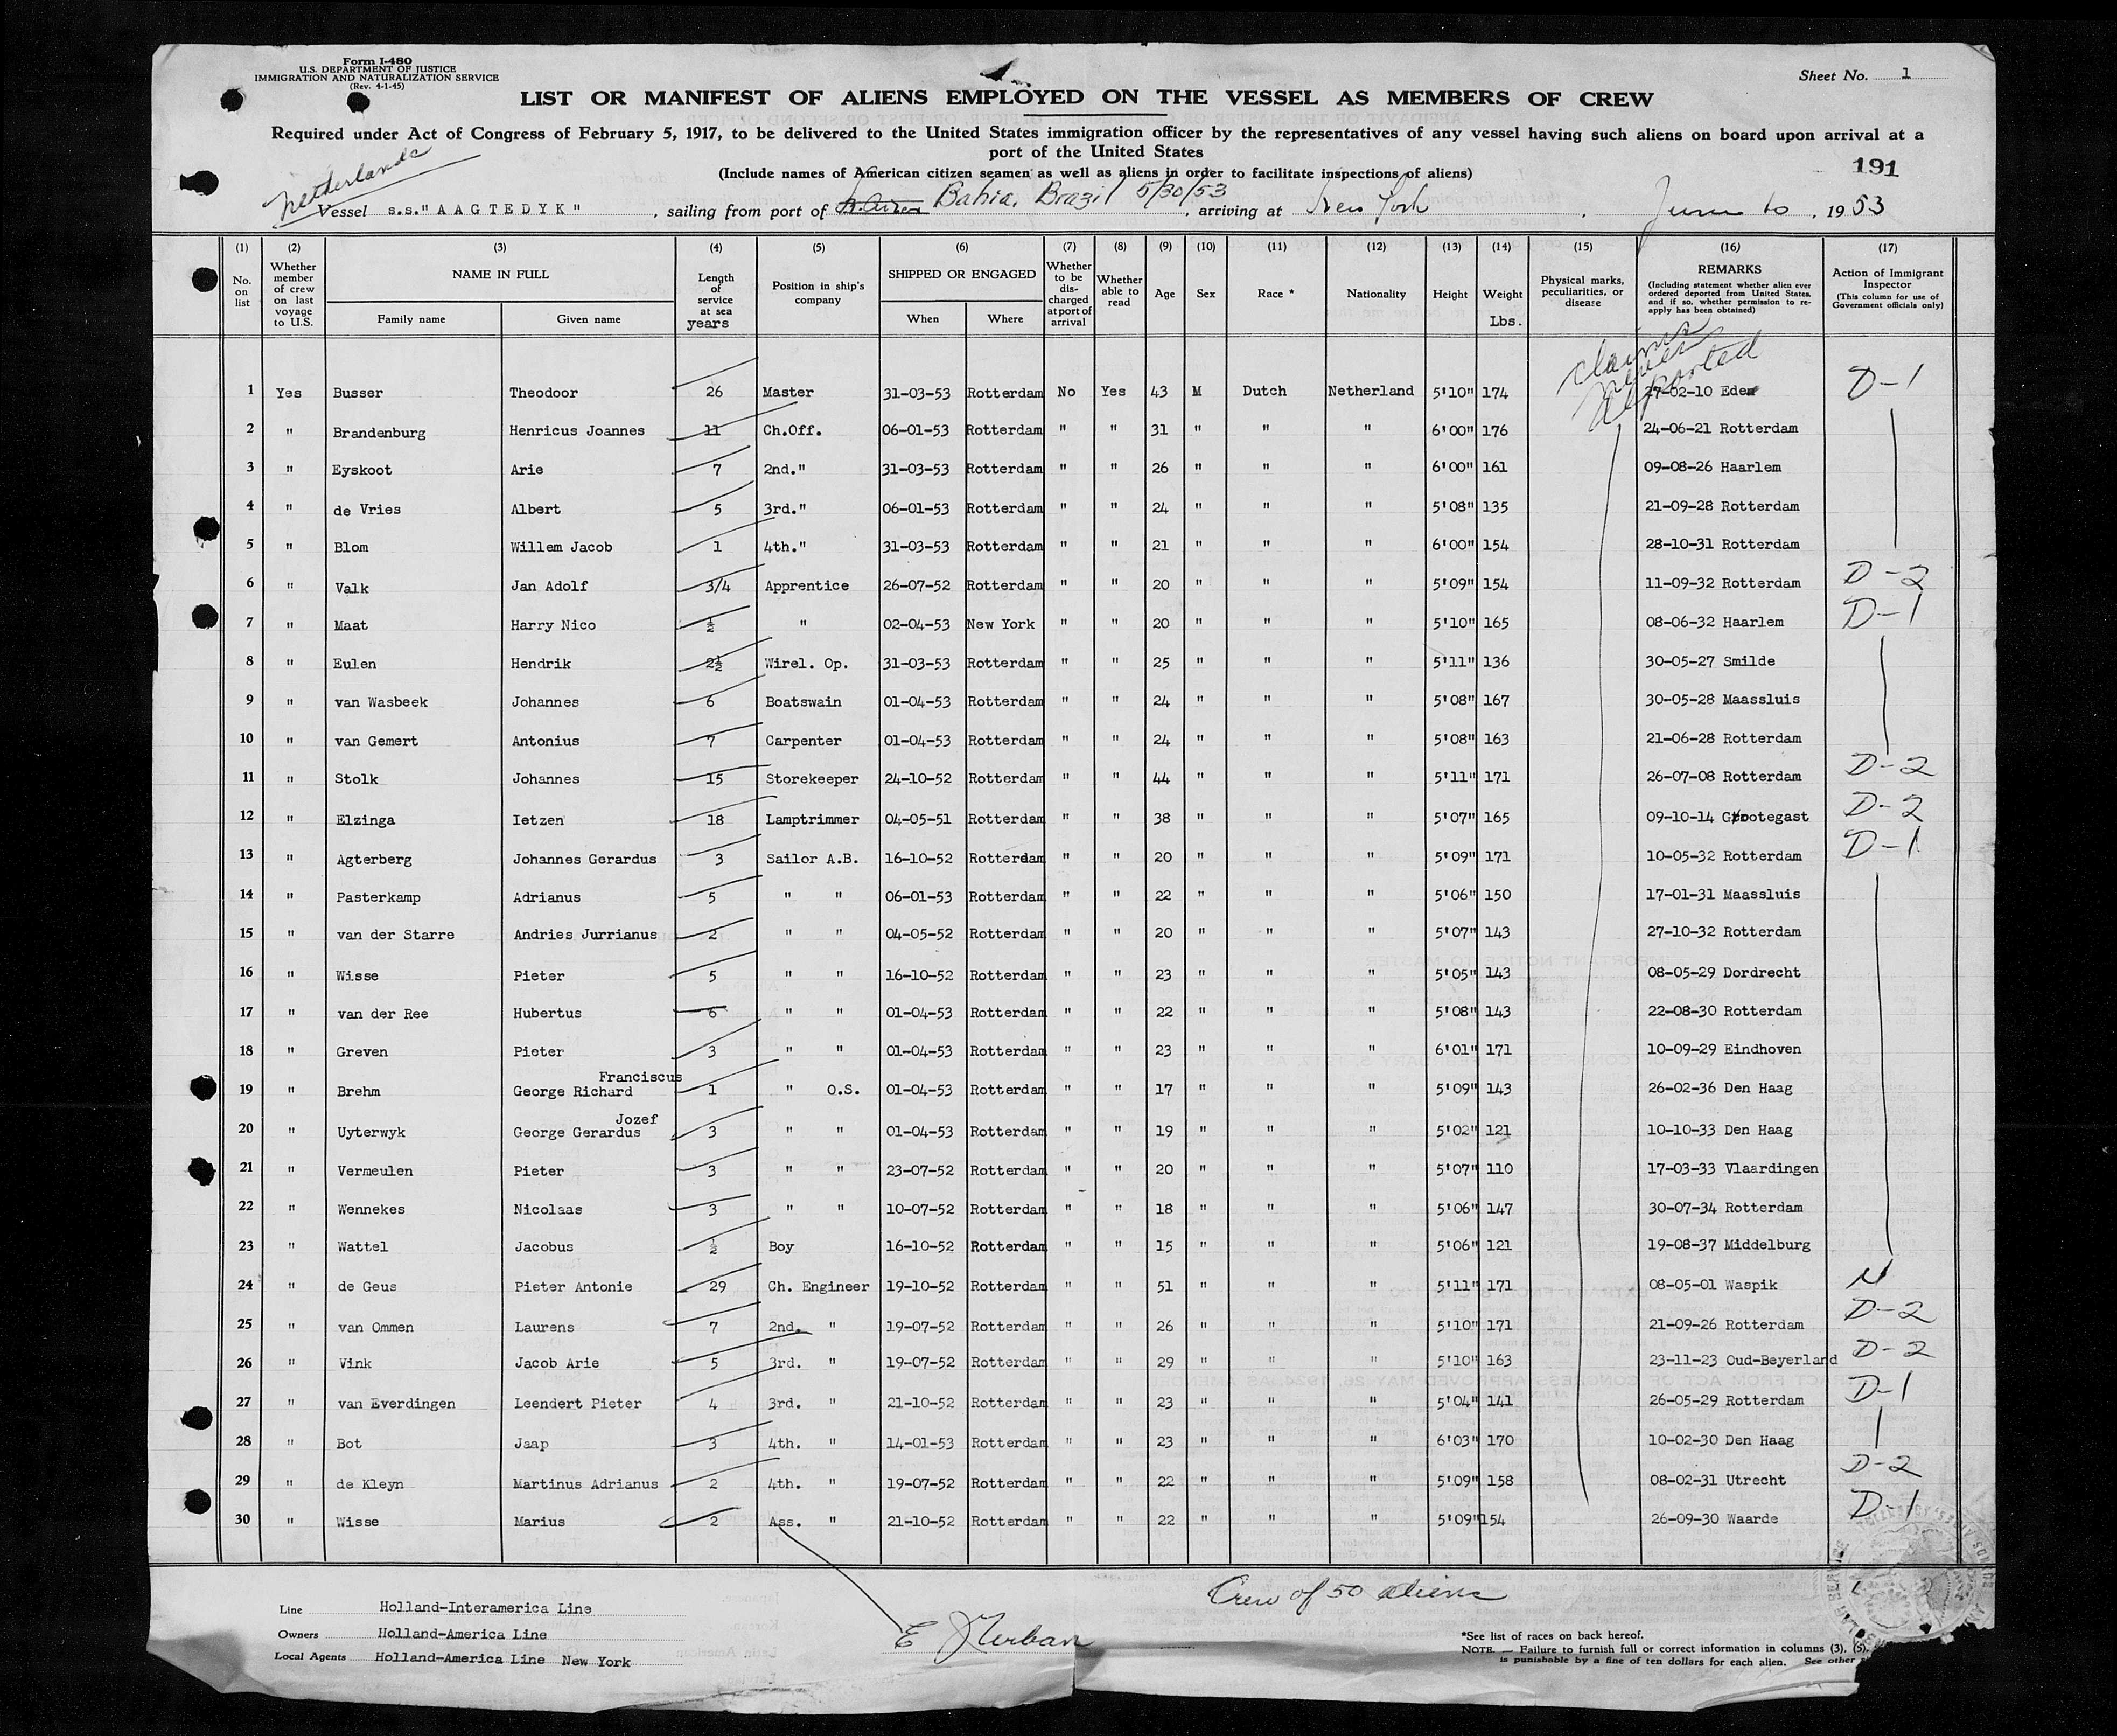 Form I-480
U.S. DEPARTMENT OF JUSTICE
IMMIGRATION AND NATURALIZATION SERVICE
(Rev. 4-1-45)
Sheet No. 1
LIST OR MANIFEST OF ALIENS EMPLOYED ON THE VESSEL AS MEMBERS OF CREW
Required under Act of Congress of February 5, 1917, to be delivered to the United States immigration officer by the representatives of any vessel having such aliens on board upon arrival at a
port of the United States
(Include names of American citizen seamen as well as aliens in order to facilitate inspections of aliens)
191
Netherlands
Vessel s.s."AAGTEDYK", sailing from port of Bahia, Brazil 5/30/53, arriving at New York, June 10, 1953
(1) (2) (3) (4) (5) (6) (7) (8) (9) (10) (11) (12) (13) (14) (15) (16) (17)
No. on list Whether member of crew on last voyage to U.S. NAME IN FULL Family name Given name Length of service at sea years Position in ship's company SHIPPED OR ENGAGED When Where Whether to be discharged at port of arrival Whether able to read Age Sex Race * Nationality Height Weight Lbs. Physical marks, peculiarities, or disease REMARKS (Including statement whether alien ever ordered deported from United States, and if so, whether permission to re-apply has been obtained) Action of Immigrant Inspector (This column for use of Government officials only)
claims never deported
1 Yes Busser Theodoor 26 Master 31-03-53 Rotterdam No Yes 43 M Dutch Netherland 5'10" 174 27-02-10 Edem D-1
2 " Brandenburg Henricus Joannes 11 Ch.Off. 06-01-53 Rotterdam " " 31 " " " 6'00" 176 24-06-21 Rotterdam
3 " Eyskoot Arie 7 2nd." 31-03-53 Rotterdam " " 26 " " " 6'00" 161 09-08-26 Haarlem
4 " de Vries Albert 5 3rd." 06-01-53 Rotterdam " " 24 " " " 5'08" 135 21-09-28 Rotterdam
5 " Blom Willem Jacob 1 4th." 31-03-53 Rotterdam " " 21 " " " 6'00" 154 28-10-31 Rotterdam
6 " Valk Jan Adolf 3/4 Apprentice 26-07-52 Rotterdam " " 20 " " " 5'09" 154 11-09-32 Rotterdam D-2
7 " Maat Harry Nico ½ " 02-04-53 New York " " 20 " " " 5'10" 165 08-06-32 Haarlem D-1
8 " Eulen Hendrik 2½ Wirel. Op. 31-03-53 Rotterdam " " 25 " " " 5'11" 136 30-05-27 Smilde
9 " van Wasbeek Johannes 6 Boatswain 01-04-53 Rotterdam " " 24 " " " 5'08" 167 30-05-28 Maassluis
10 " van Gemert Antonius 7 Carpenter 01-04-53 Rotterdam " " 24 " " " 5'08" 163 21-06-28 Rotterdam
11 " Stolk Johannes 15 Storekeeper 24-10-52 Rotterdam " " 44 " " " 5'11" 171 26-07-08 Rotterdam D-2
12 " Elzinga Ietzen 18 Lamptrimmer 04-05-51 Rotterdam " " 38 " " " 5'07" 165 09-10-14 Grootegast D-2
13 " Agterberg Johannes Gerardus 3 Sailor A.B. 16-10-52 Rotterdam " " 20 " " " 5'09" 171 10-05-32 Rotterdam D-1
14 " Pasterkamp Adrianus 5 " " 06-01-53 Rotterdam " " 22 " " " 5'06" 150 17-01-31 Maassluis
15 " van der Starre Andries Jurrianus 2 " " 04-05-52 Rotterdam " " 20 " " " 5'07" 143 27-10-32 Rotterdam
16 " Wisse Pieter 5 " " 16-10-52 Rotterdam " " 23 " " " 5'05" 143 08-05-29 Dordrecht
17 " van der Ree Hubertus 6 " " 01-04-53 Rotterdam " " 22 " " " 5'08" 143 22-08-30 Rotterdam
18 " Greven Pieter 3 " " 01-04-53 Rotterdam " " 23 " " " 6'01" 171 10-09-29 Eindhoven
19 " Brehm George Richard Franciscus 1 " O.S. 01-04-53 Rotterdam " " 17 " " " 5'09" 143 26-02-36 Den Haag
20 " Uyterwyk George Gerardus Jozef 3 " " 01-04-53 Rotterdam " " 19 " " " 5'02" 121 10-10-33 Den Haag
21 " Vermeulen Pieter 3 " " 23-07-52 Rotterdam " " 20 " " " 5'07" 110 17-03-33 Vlaardingen
22 " Wennekes Nicolaas 3 " " 10-07-52 Rotterdam " " 18 " " " 5'06" 147 30-07-34 Rotterdam
23 " Wattel Jacobus ½ Boy 16-10-52 Rotterdam " " 15 " " " 5'06" 121 19-08-37 Middelburg
24 " de Geus Pieter Antonie 29 Ch. Engineer 19-10-52 Rotterdam " " 51 " " " 5'11" 171 08-05-01 Waspik
25 " van Ommen Laurens 7 2nd. " 19-07-52 Rotterdam " " 26 " " " 5'10" 171 21-09-26 Rotterdam D-2
26 " Vink Jacob Arie 5 3rd. " 19-07-52 Rotterdam " " 29 " " " 5'10" 163 23-11-23 Oud-Beyerland D-2
27 " van Everdingen Leendert Pieter 4 3rd. " 21-10-52 Rotterdam " " 23 " " " 5'04" 141 26-05-29 Rotterdam D-1
28 " Bot Jaap 3 4th. " 14-01-53 Rotterdam " " 23 " " " 6'03" 170 10-02-30 Den Haag
29 " de Kleyn Martinus Adrianus 2 4th. " 19-07-52 Rotterdam " " 22 " " " 5'09" 158 08-02-31 Utrecht D-2
30 " Wisse Marius 2 Ass. " 21-10-52 Rotterdam " " 22 " " " 5'09" 154 26-09-30 Waarde D-1
Crew of 50 aliens
Line Holland-Interamerica Line
Owners Holland-America Line
Local Agents Holland-America Line New York
*See list of races on back hereof.
NOTE.—Failure to furnish full or correct information in columns (3), (5),
is punishable by a fine of ten dollars for each alien. See other